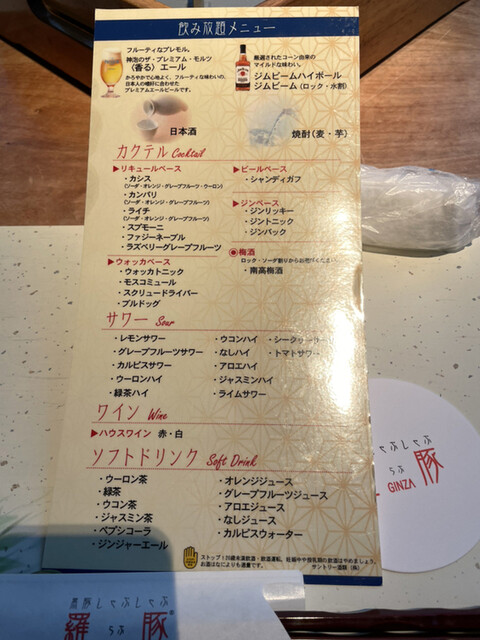 飲み放題メニュー
フルーティなプレモル。
神泡のザ・プレミアム・モルツ
〈香る〉エール
かろやかで心地よく、フルーティな味わいの、
日本人の嗜好に合わせた
プレミアムエールビールです。
厳選されたコーン由来の
マイルドな味わい。
ジムビームハイボール
ジムビーム(ロック・水割)
日本酒
焼酎(麦・芋)
カクテル Cocktail
▶リキュールベース
・カシス
(ソーダ・オレンジ・グレープフルーツ・ウーロン)
・カンパリ
(ソーダ・オレンジ・グレープフルーツ)
・ライチ
(ソーダ・オレンジ・グレープフルーツ)
・スプモーニ
・ファジーネーブル
・ラズベリーグレープフルーツ
▶ウォッカベース
・ウォッカトニック
・モスコミュール
・スクリュードライバー
・ブルドッグ
▶ビールベース
・シャンディガフ
▶ジンベース
・ジンリッキー
・ジントニック
・ジンバック
◉梅酒
ロック・ソーダ割りからお選びください
・南高梅酒
サワー Sour
・レモンサワー
・グレープフルーツサワー
・カルピスサワー
・ウーロンハイ
・緑茶ハイ
・ウコンハイ
・なしハイ
・アロエハイ
・ジャスミンハイ
・ライムサワー
・シークヮーサー
・トマトサワー
ワイン Wine
▶ハウスワイン 赤・白
ソフトドリンク Soft Drink
・ウーロン茶
・緑茶
・ウコン茶
・ジャスミン茶
・ペプシコーラ
・ジンジャーエール
・オレンジジュース
・グレープフルーツジュース
・アロエジュース
・なしジュース
・カルピスウォーター
ストップ!20歳未満飲酒・飲酒運転。妊娠中や授乳期の飲酒はやめましょう。
お酒はなによりも適量です。
サントリー酒類(株)
しゃぶしゃぶ
らぶ
豚
GINZA
蒸豚しゃぶしゃぶ
羅
らぶ
豚